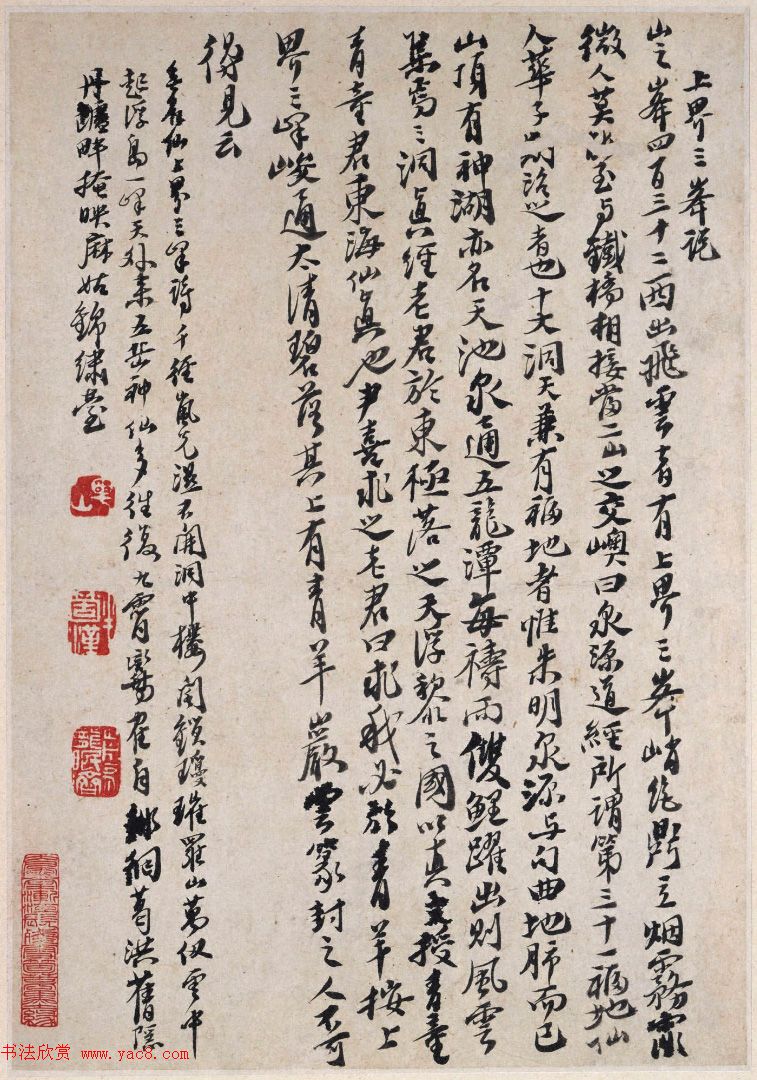 上界三峯說
山之峯四百三十二西出飛雲者有上界三峯峭絕鼎立烟霧霏
微人莫以至与鐵橋相接當二山之交嶼曰泉源道經所謂第三十一福地仙
人華子所治之者也十大洞天兼有福地者惟朱明泉源与句曲地肺而已
山頂有神湖亦名天池泉通五龍潭每禱雨雙鯉躍出則風雲
集焉三洞真經老君於東極落之天浮黎之國以真文授青童
青童君東海仙真也尹喜求之老君曰求我必於青羊按上
界三峰峻通太清碧落其上有青羊巖雲篆封之人不可
得見云
仙上界三峰詩千徑嵐光溼不開洞中樓閣鎖瓊瑰羅山萬仞雲中
起浮島一峰天外來五岳神仙多往復九霄鸞雀自徊葛洪舊隱
丹鑪畔掩映麻姑錦繡臺
书法欣赏 www.yac8.com